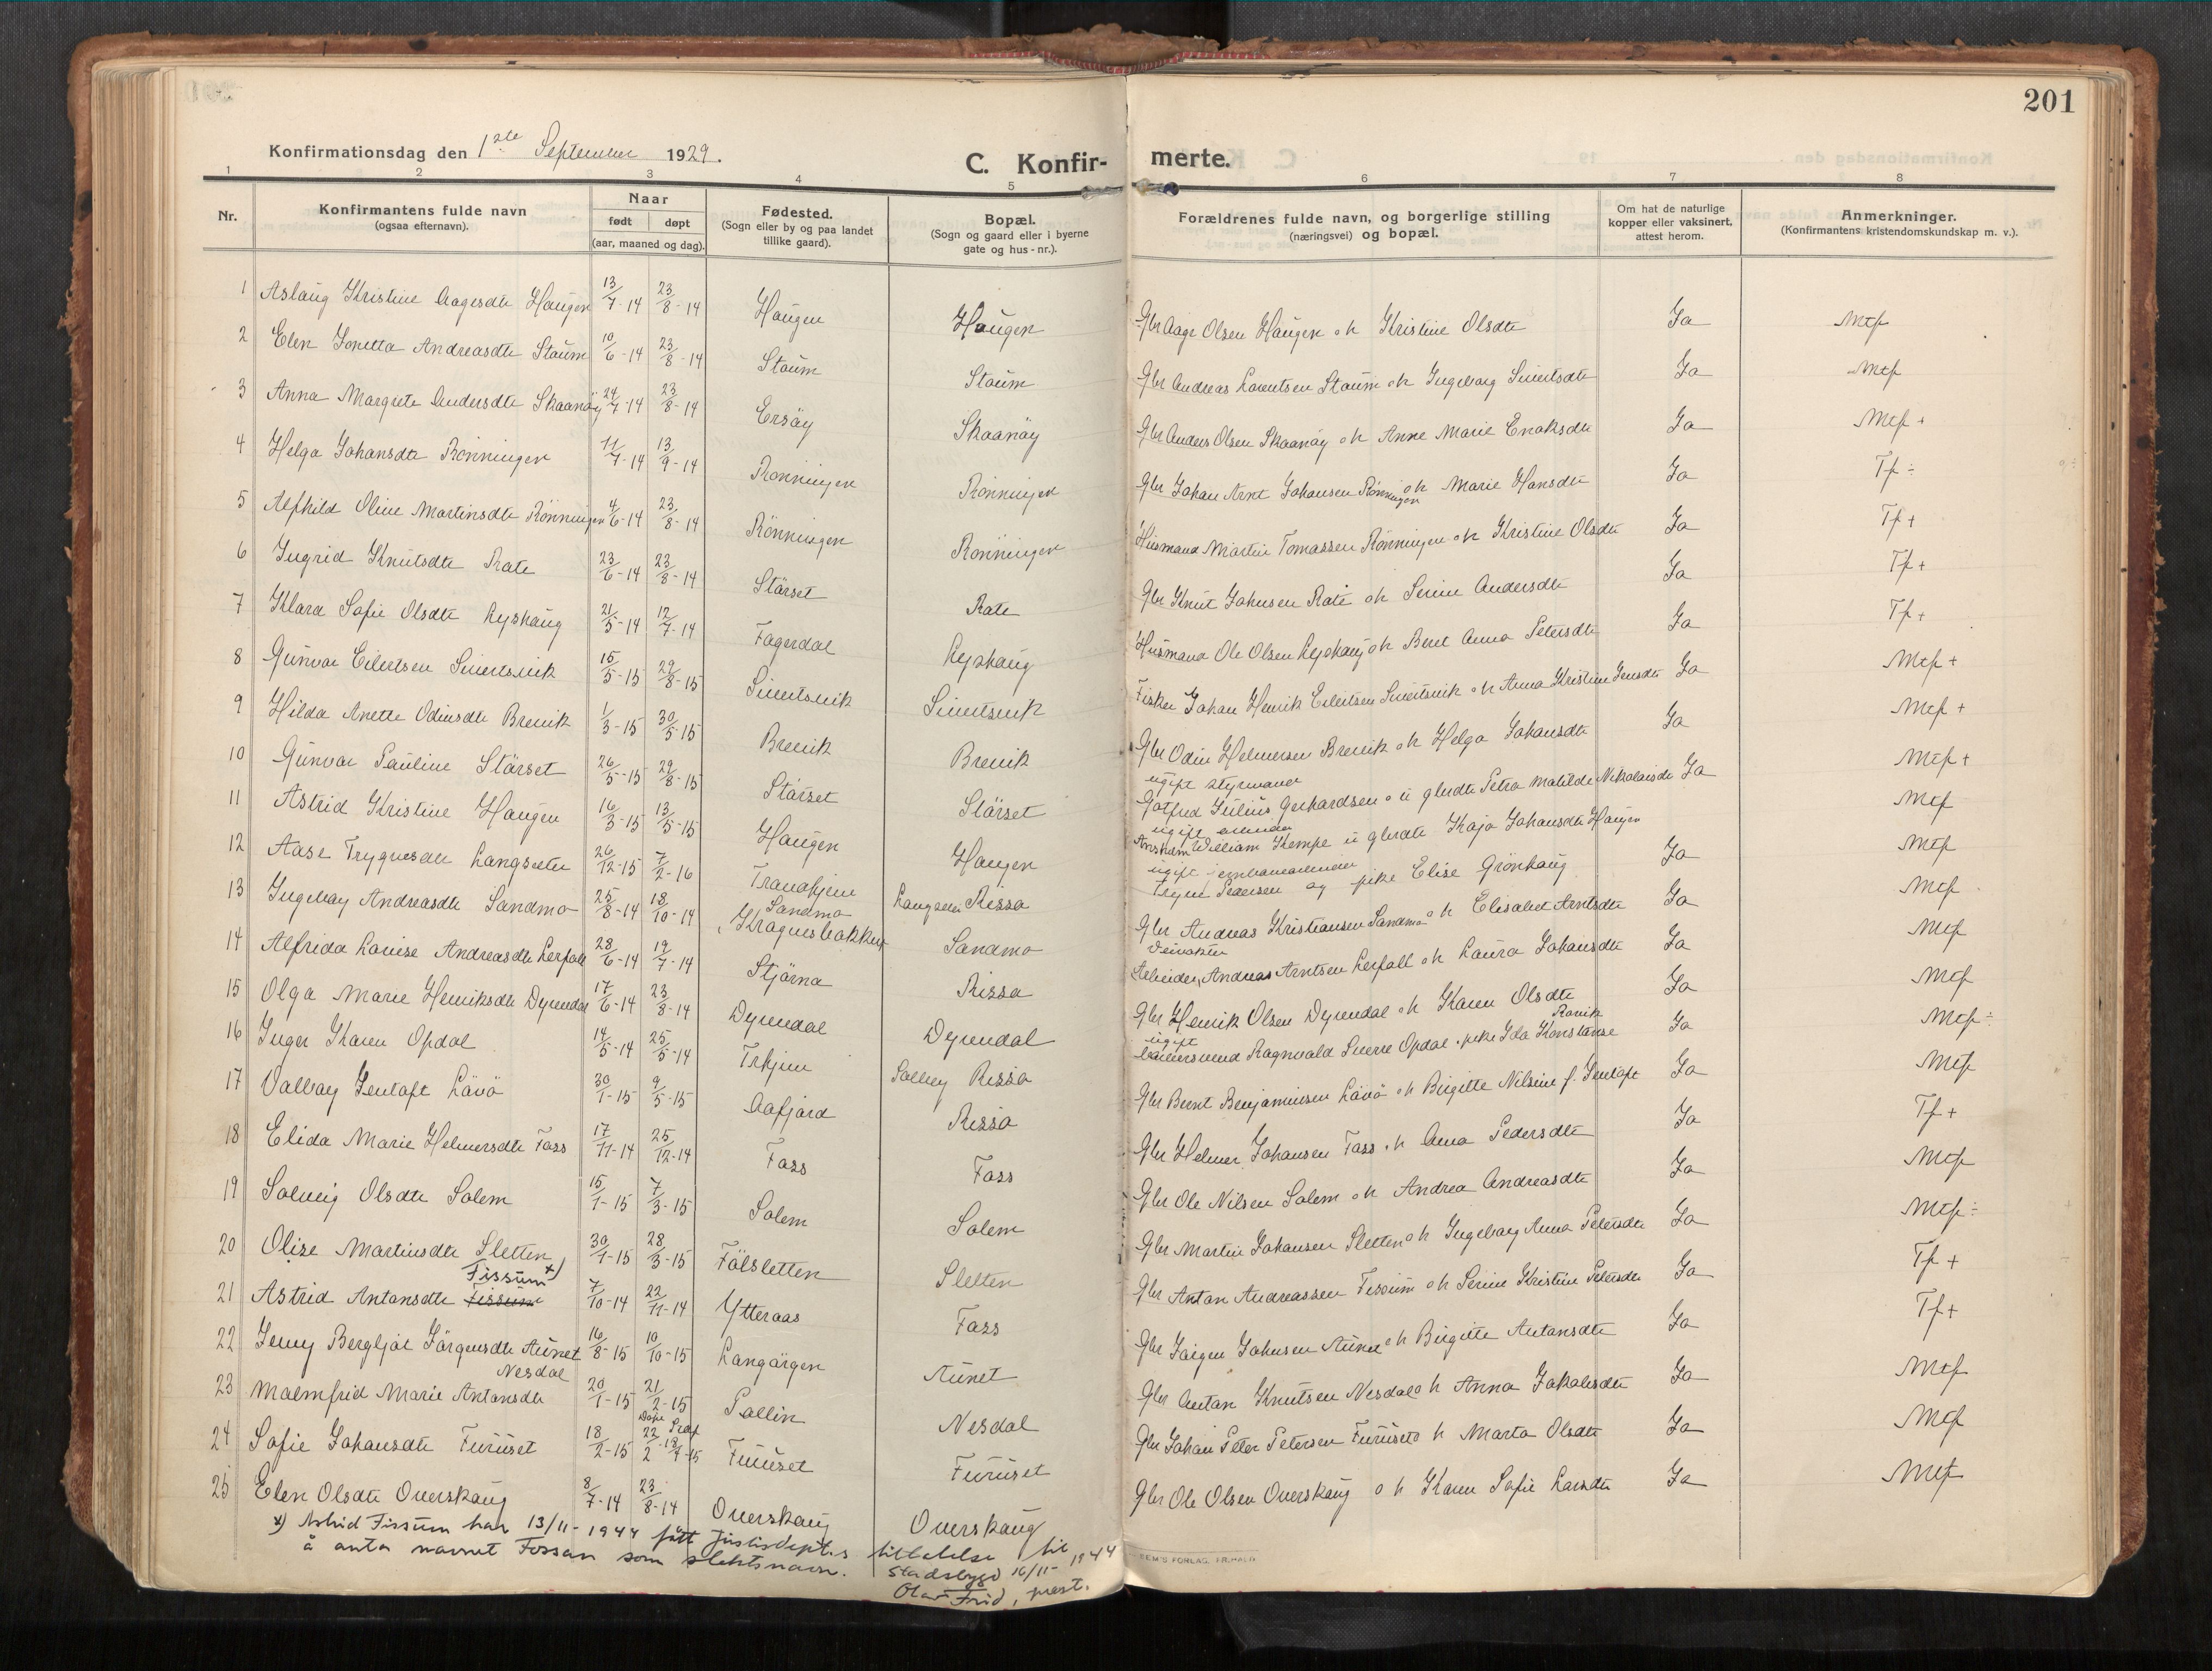 201
Konfirmationsdag den 1ste September 1929.
C. Konfir- merte.
1 2 3 4 5 6 7 8
Nr.
Konfirmantens fulde navn
(ogsaa efternavn).
Naar
født døpt
(aar, maaned og dag).
Fødested.
(Sogn eller by og paa landet
tillike gaard).
Bopæl.
(Sogn og gaard eller i byerne
gate og hus-nr.).
Forældrenes fulde navn, og borgerlige stilling
(næringsvei) og bopæl.
Om hat de naturlige
kopper eller vaksinert,
attest herom.
Anmerkninger.
(Konfirmantens kristendomskundskap m. v.).
1 Aslaug Kristine Aagesdtr Haugen 13/7-14 23/8-14 Haugen Haugen Gbr Aage Olsen Haugen o h Kristine Olsdtr Ja Mtf
2 Elen Jonetta Andreasdtr Staum 10/6-14 23/8-14 Staum Staum Gbr Andreas Larentsen Staum o h Ingeborg Sivertsdtr Ja Mtf
3 Anna Margrete Andersdtr Skaanøy 24/7-14 23/8-14 Ersøy Skaanøy Gbr Anders Olsen Skaanøy o h Anne Marie Enoksdtr Ja Mtf +
4 Helga Johansdtr Rønningen 11/7-14 13/9-14 Rønningen Rønningen Gbr Johan Arnt Johansen Rønningen o h Marie Hansdtr Ja Tf ÷
5 Alfhild Oline Martinsdtr Rønningen 4/6-14 23/8-14 Rønningen Rønningen Husmand Martin Tomassen Rønningen o h Kristine Olsdtr Ja Tf +
6 Ingrid Knutsdtr Rate 23/6-14 23/8-14 Stärset Rate Gbr Knut Johnsen Rate o h Serine Andersdtr Ja Tf +
7 Klara Sofie Olsdtr Lyshaug 21/5-14 12/7-14 Fagerdal Lyshaug Husmand Ole Olsen Lyshaug o h Beret Anna Petersdtr Ja Tf +
8 Gunvor Eilertsen Sivertsvik 15/5-15 29/8-15 Sivertsvik Sivertsvik Fisker Johan Henrik Eilertsen Sivertsvik o h Anna Kristine Jensdtr Ja Mtf +
9 Hilda Anette Odinsdtr Brevik 1/3-15 30/5-15 Brevik Brevik Gbr Odin Helmersen Brevik o h Helga Johansdtr Ja Mtf +
10 Gunvor Pauline Stärset 26/5-15 29/8-15 Stärset Stärset ugift styrmand
Gotfred Julius Gerhardsen o u gbrdtr Petra Matilde Nikolaisdtr Ja Mtf +
11 Astrid Kristine Haugen 16/3-15 13/5-15 Haugen Haugen ugift
William Kempe u gbrdtr Kaja Johansdtr Haugen Mtf
12 Aase Trygvesdtr Langsæter 26/12-15 7/2-16 Trondhjem Langsæter Rissa ugift
Trygve Pedersen og pike Elise Grønhaug Ja Mtf
13 Ingeborg Andreasdtr Sandmo 25/8-14 18/10-14 Sandmo Sandmo Gbr Andreas Kristiansen Sandmo o h Elisabet Arntsdtr Ja Mtf
14 Alfrida Lovise Andreasdtr Lerfall 28/6-14 19/7-14 Kragnesbakken
Stjørna Rissa Arbeider Andreas Arntsen Lerfall o h Laura Johansdtr Ja Mtf
15 Olga Marie Henriksdtr Dyrendal 17/6-14 23/8-14 Dyrendal Dyrendal Gbr Henrik Olsen Dyrendal o h Karen Olsdtr Ja Mtf
16 Inger Karen Opdal 14/5-14 25/5-14 Trhjem Rissa ugift
Ragnvald Sverre Opdal . pike Ida Konstanse Ja Mtf ÷
17 Valborg Gentoft Lövö 30/1-15 9/5-15 Aafjord Rissa Gbr Bernt Benjaminsen Lövö o h Birgitte Nilsine f. Gentoft Ja Mtf
18 Elida Marie Helmersdtr Fass 17/11-14 25/12-14 Fass Fass Gbr Helmer Johansen Fass o h Anna Pedersdtr Ja Tf +
19 Solveig Olsdtr Solem 15/1-15 7/3-15 Solem Solem Gbr Ole Nilsen Solem o h Andrea Andreasdtr Ja Mtf
20 Olise Martinsdtr Sletten 30/1-15 28/3-15 Fölsletten Sletten Gbr Martin Johansen Sletten o h Ingeborg Anna Petersdtr Ja Mtf ÷
Fissum x)
21 Astrid Antonsdtr Fissum 7/10-14 22/11-14 Ytteraas Fass Gbr Antan Andreassen Fissum o h Serine Kristine Petersdtr Ja Tf +
22 Jenny Bergljot Jörgensdtr Aunet 16/8-15 10/10-15 Langörgen Aunet Gbr Jörgen Johnsen Aunet o h Birgitte Antonsdtr Ja Tf +
Nesdal
23 Malmfrid Marie Antonsdtr 20/1-15 21/2-15 Pallin Nesdal Gbr Antan Knutsen Nesdal o h Anna Jakobsdtr Ja Mtf
24 Sofie Johansdtr Furuset 18/2-15 22/2 - 18/4-15 Furuset Furuset Gbr Johan Peter Petersen Furuset o h Marta Olsdtr Ja Mtf
25 Elen Olsdtr Overskaug 8/7-14 23/8-14 Overskaug Overskaug Gbr Ole Olsen Overskaug o h Karen Sofie Larsdtr Ja Mtf
x) Astrid Fissum har 13/11-1944 fått Justisdept.s tillatelse til
å anta navnet Fossan som slektsnavn. Stadsbygd 16/11-1944
Olav Frid, prest.